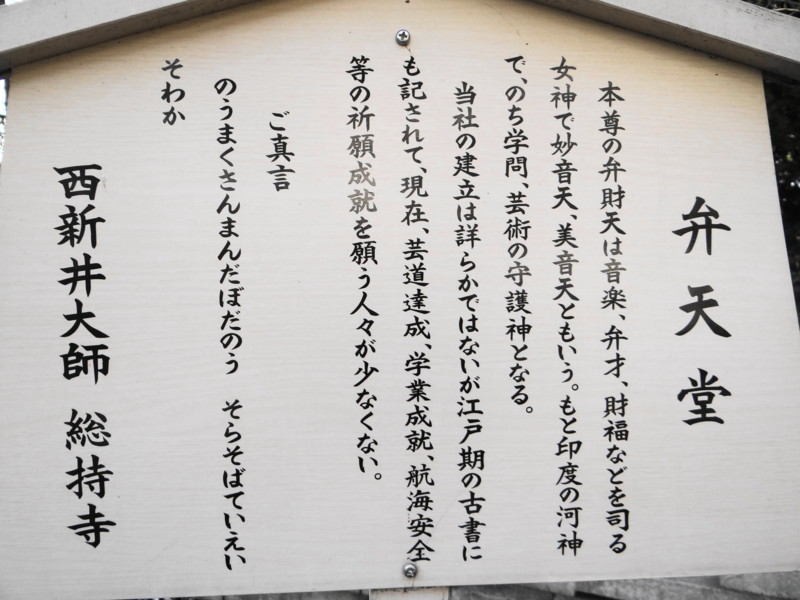 弁天堂
本尊の弁財天は音楽、弁才、財福などを司る
女神で妙音天、美音天ともいう。もと印度の河神
で、のち学問、芸術の守護神となる。
当社の建立は詳らかではないが江戸期の古書に
も記されて、現在、芸道達成、学業成就、航海安全
等の祈願成就を願う人々が少なくない。
ご真言
のうまくさんまんだぼだのう　そらそばていえい
そわか
西新井大師　総持寺